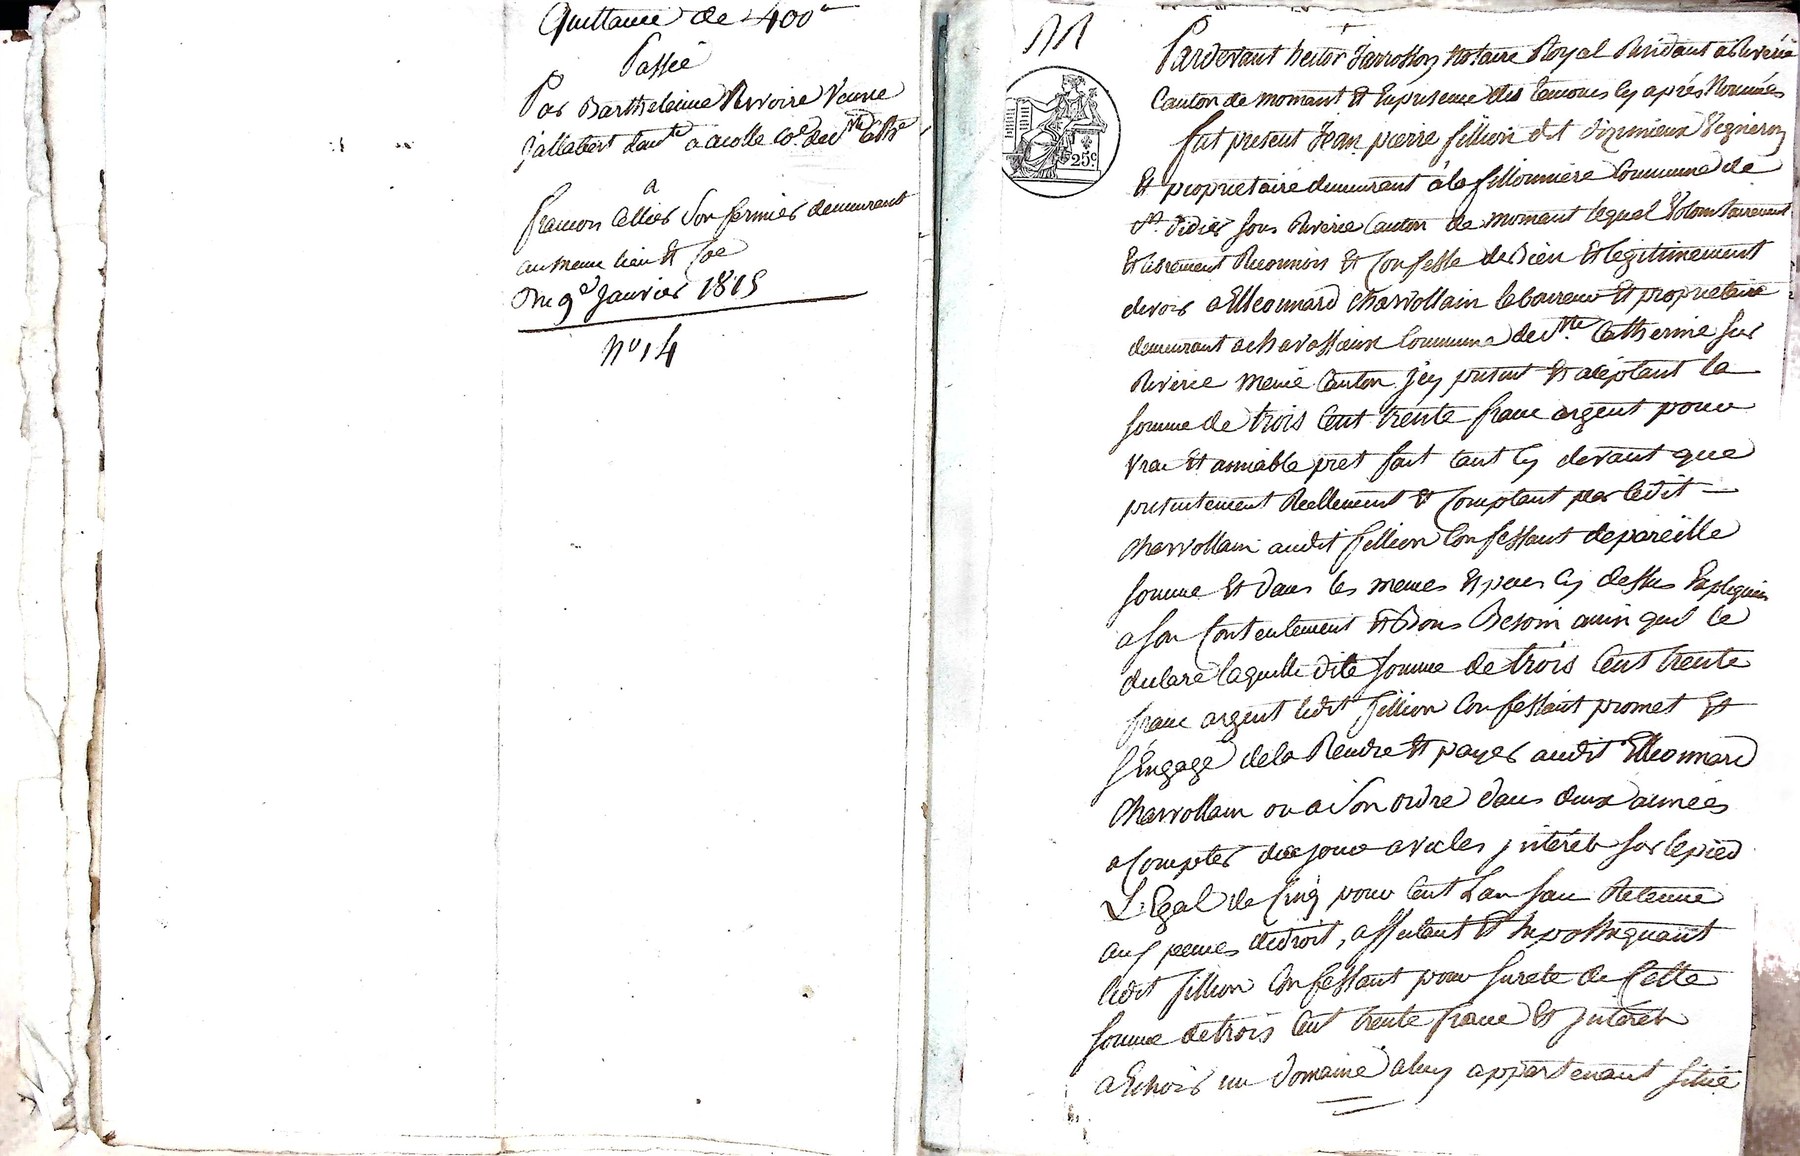 Quittance de 400"
Passée
Par Barthelemie Rivoire Veuve
Jallabert dem.te a acolle Co.e de Ste Cath.e
a
francois Cellier Son fermier demeurant
au meme lieu et Coe
Du 9e Janvier 1815
No 14
25c.
Pardevant hector Jarrosson Notaire Royal Residant a Riverie
Canton de mornant Et En presence des temoins cy après Nommés
fut present Jean pierre fillion dit vigneron
Et proprietaire demeurant á la fillonniere Commune de
St. didier Sous Riverie Canton de mornant lequel Volontairement
Et librement Reconnois Et Confesse de Bien Et legitimement
devoir a Elleonnard Charvollain laboureur Et proprietaire
demeurant a Chavassieux Commune de Ste. Catherine Sur
Riverie meme Canton Jcy present Et aceptant la
Somme de trois Cent trente franc argent pour
Vrai Et amiable pret fait tant Cy devant que
presentement Reellement Et Comptant par ledit
Charvollain audit fillion Confessant de pareille
Somme Et dans les memes Especes Cy dessus Expliquées
a Son Contentement Et Bons Besoin ainsi qu'il le
declare laquelle dite Somme de trois Cent trente
franc argent ledit fillion Confessant promet Et
S'Engage de la Rendre Et payer audit Elleonnard
Charvollain ou a Son ordre dans deux années
a Compter de ce jour avec les jnterêts Sur le pied
L'Egal de Cinq pour Cent L'an Sans Retenue
aux peines de droit, affectant Et hypothequant
ledit fillion Confessant pour Sureté de Cette
Somme de trois Cent trente franc Et jnterêts
a Echoir un Domaine a luy appartenant Situé